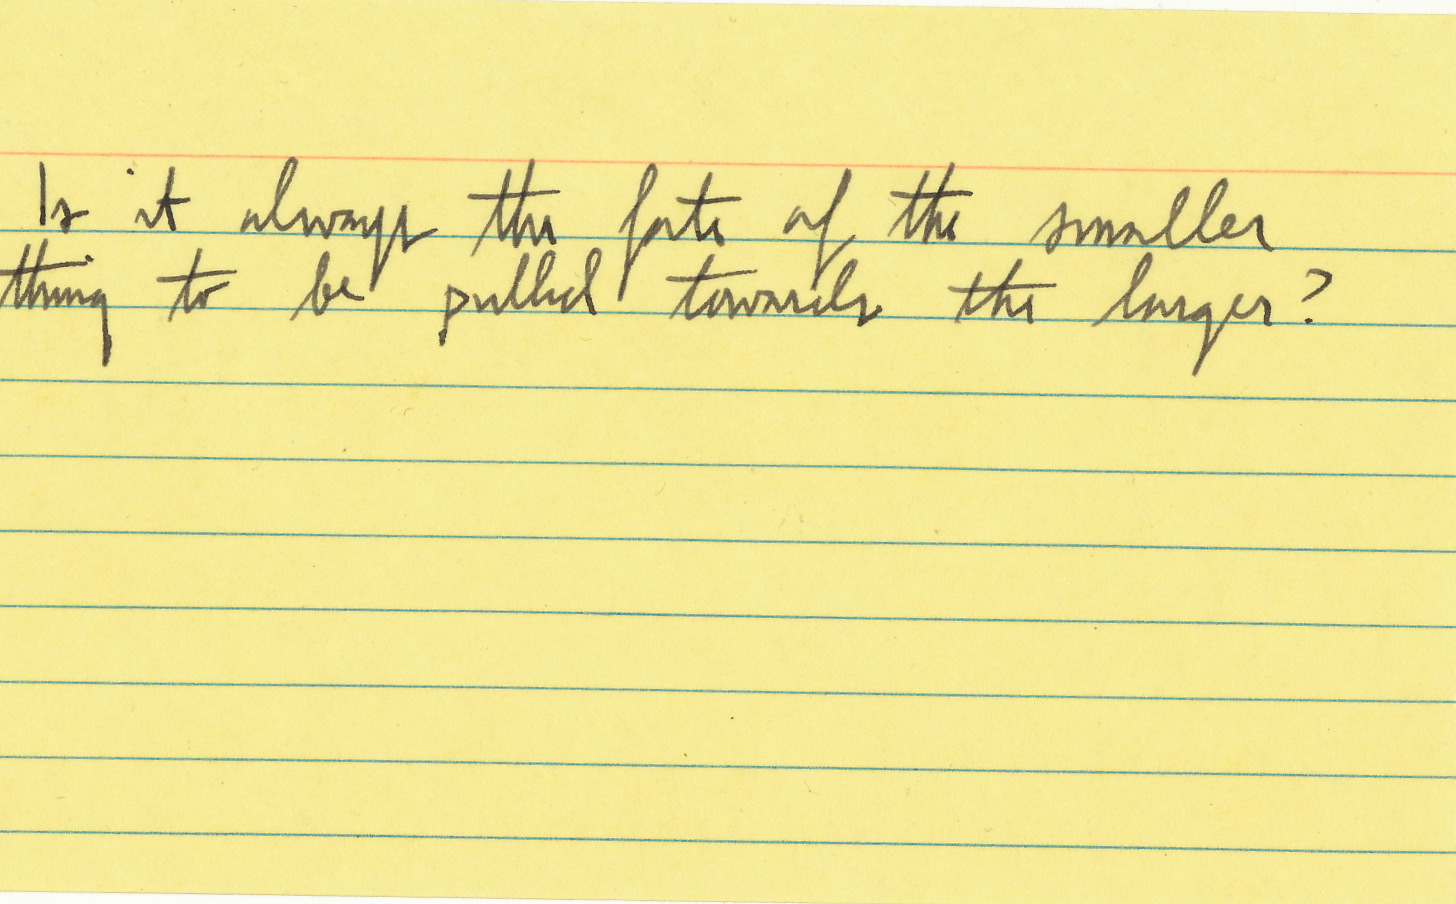 Is it always the fate of the smaller
thing to be pulled towards the larger?